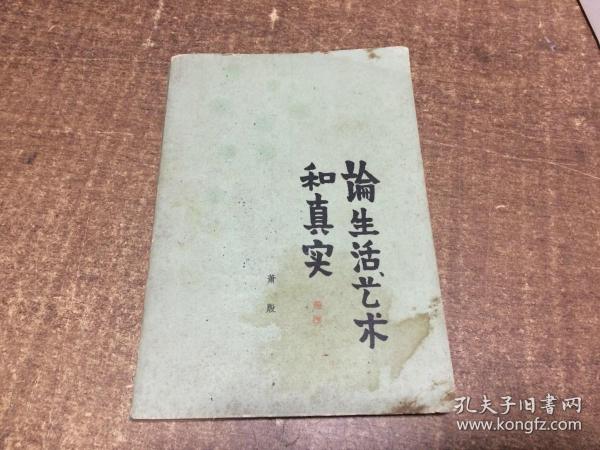 論生活、艺术
和真实
萧殷
孔夫子旧書网
www.kongfz.com